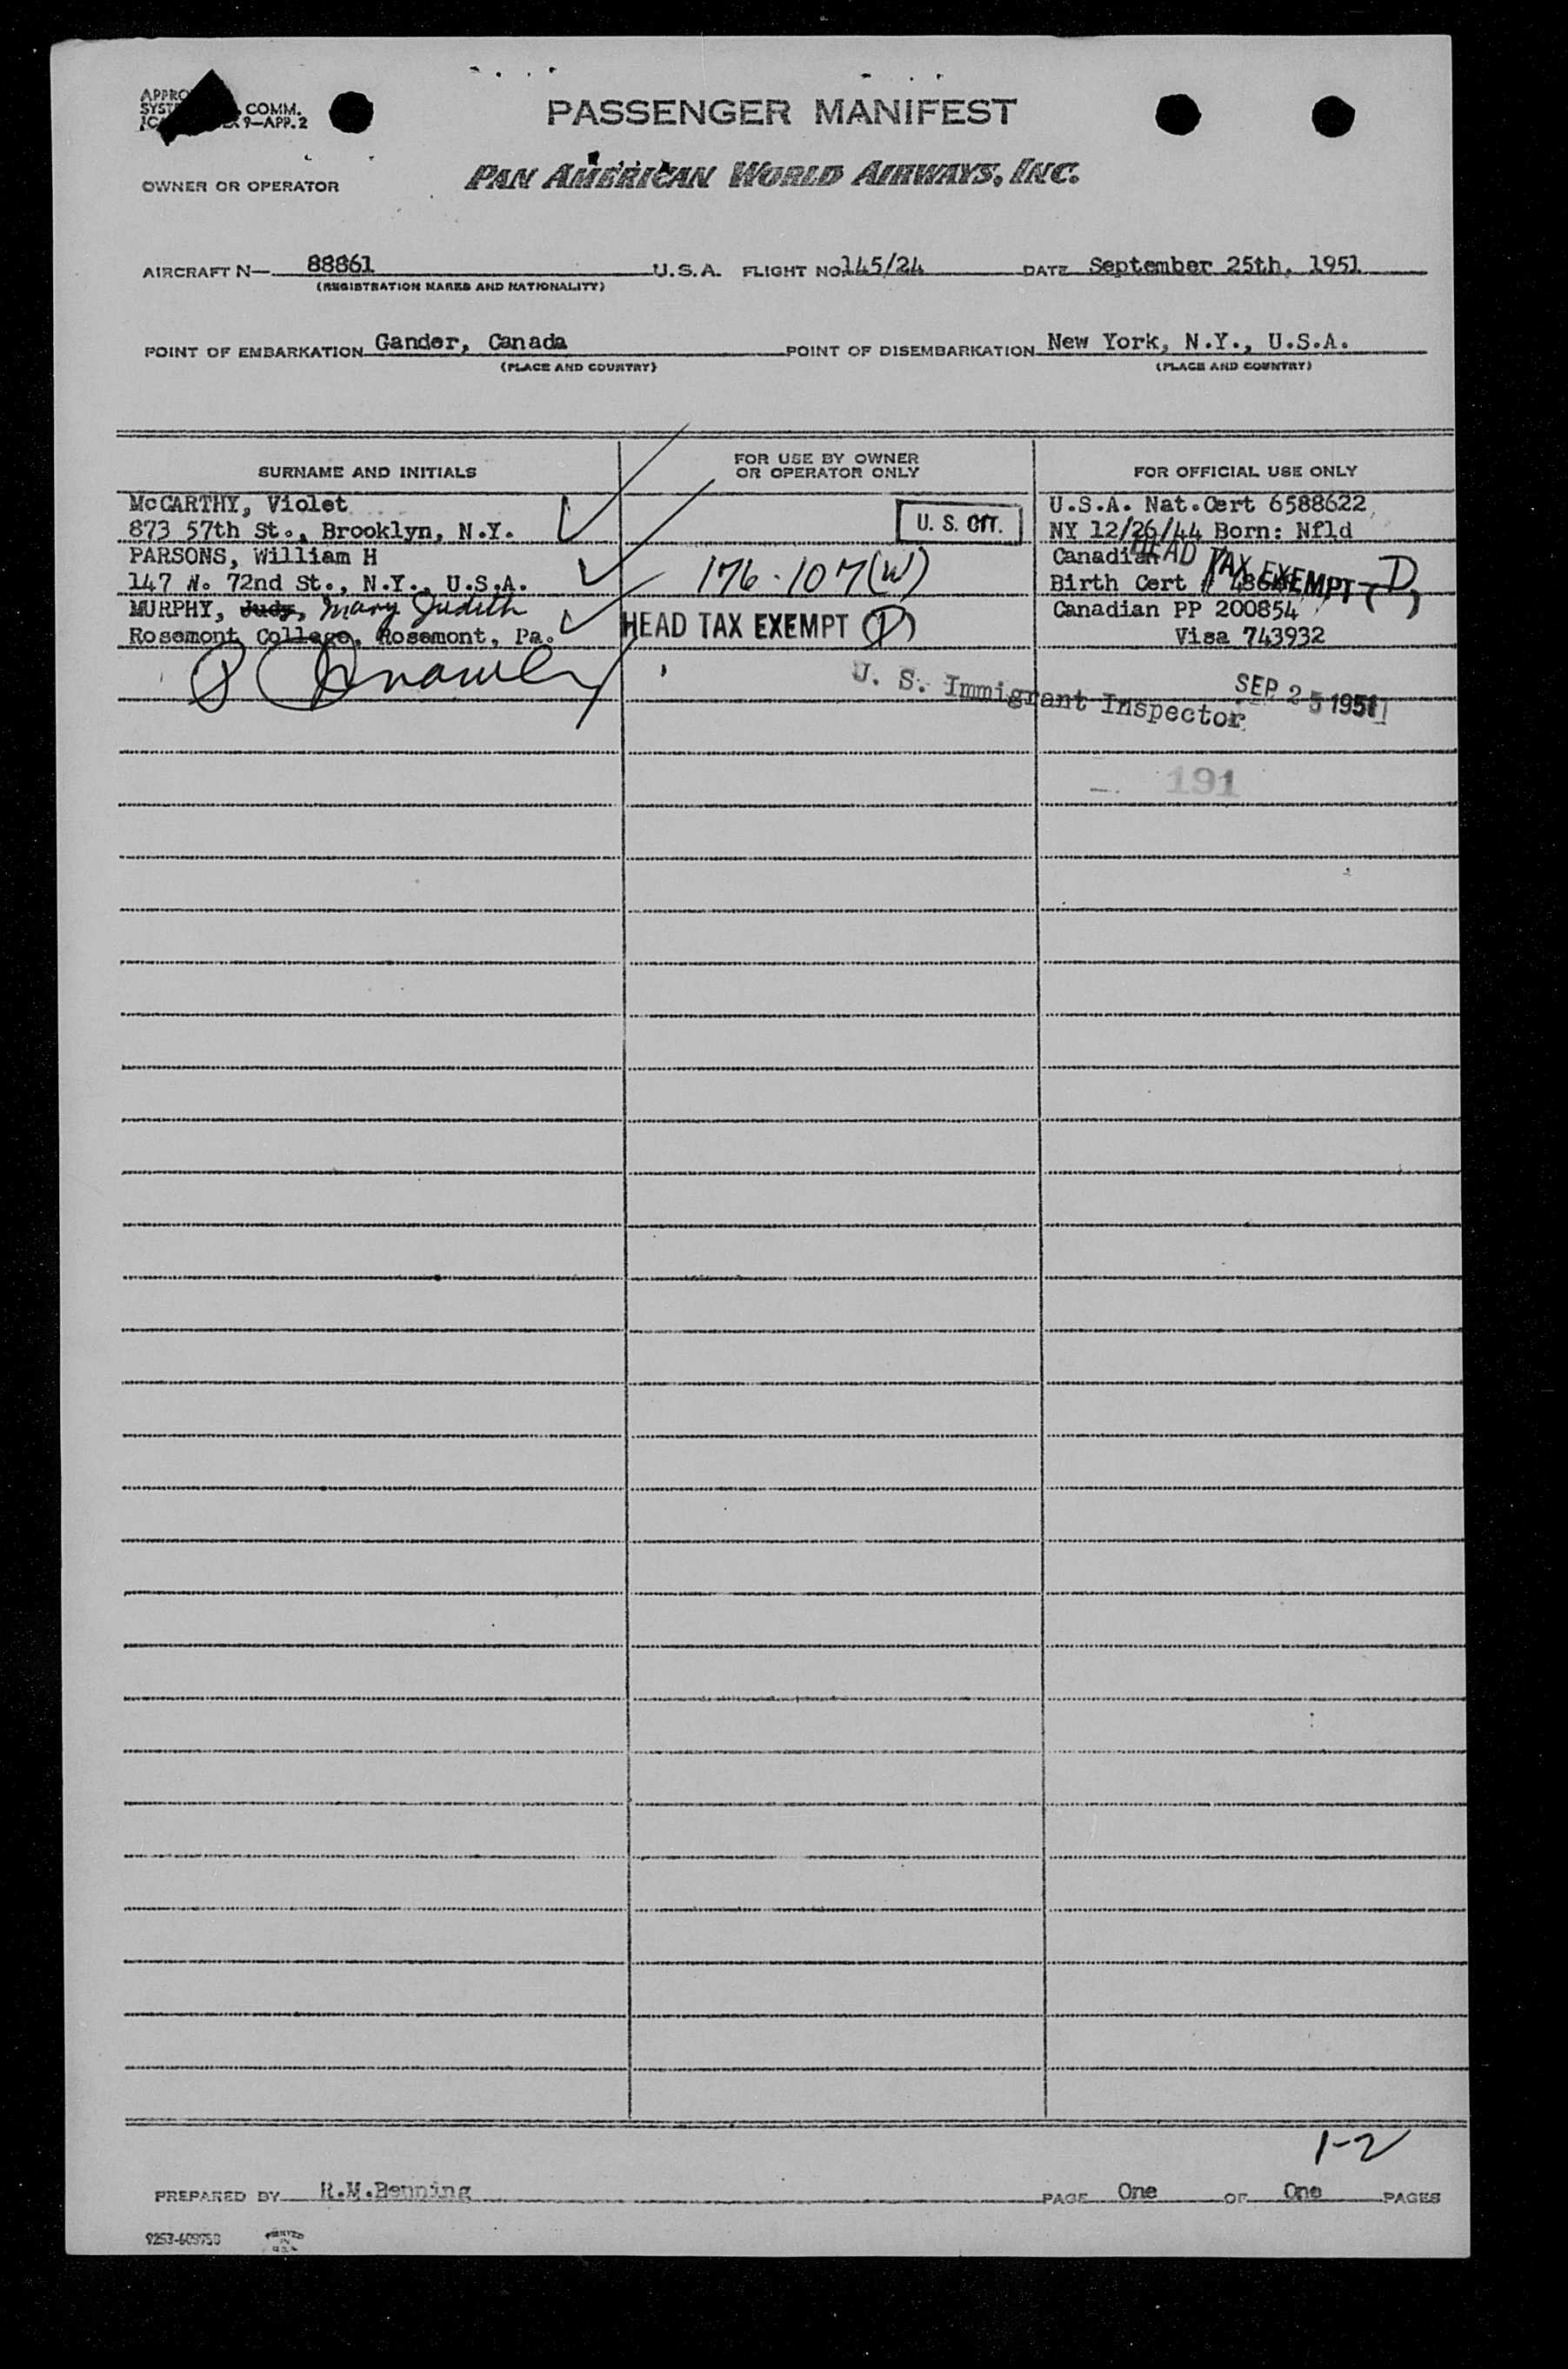 COMM.
9—APP.2
PASSENGER MANIFEST
OWNER OR OPERATOR PAN AMERICAN WORLD AIRWAYS, INC.
AIRCRAFT N— 88861 U.S.A. FLIGHT NO. 145/24 DATE September 25th, 1951
(REGISTRATION MARKS AND NATIONALITY)
POINT OF EMBARKATION Gander, Canada POINT OF DISEMBARKATION New York, N.Y., U.S.A.
(PLACE AND COUNTRY) (PLACE AND COUNTRY)
SURNAME AND INITIALS FOR USE BY OWNER OR OPERATOR ONLY FOR OFFICIAL USE ONLY
McCARTHY, Violet U.S.A. Nat.Cert 6588622
873 57th St., Brooklyn, N.Y. U. S. CIT. NY 12/26/44 Born: Nfld
PARSONS, William H Canadian HEAD TAX EXEMPT (D)
147 W. 72nd St., N.Y., U.S.A. 176.107(W) Birth Cert #
MURPHY, Judy, Mary Judith Canadian PP 200854
Rosemont College, Rosemont, Pa. HEAD TAX EXEMPT (D) Visa 743932
U. S. Immigrant Inspector SEP 25 1951
191
1-2
PREPARED BY R.M.Benning PAGE One OF One PAGES
PRINTED IN U.S.A.